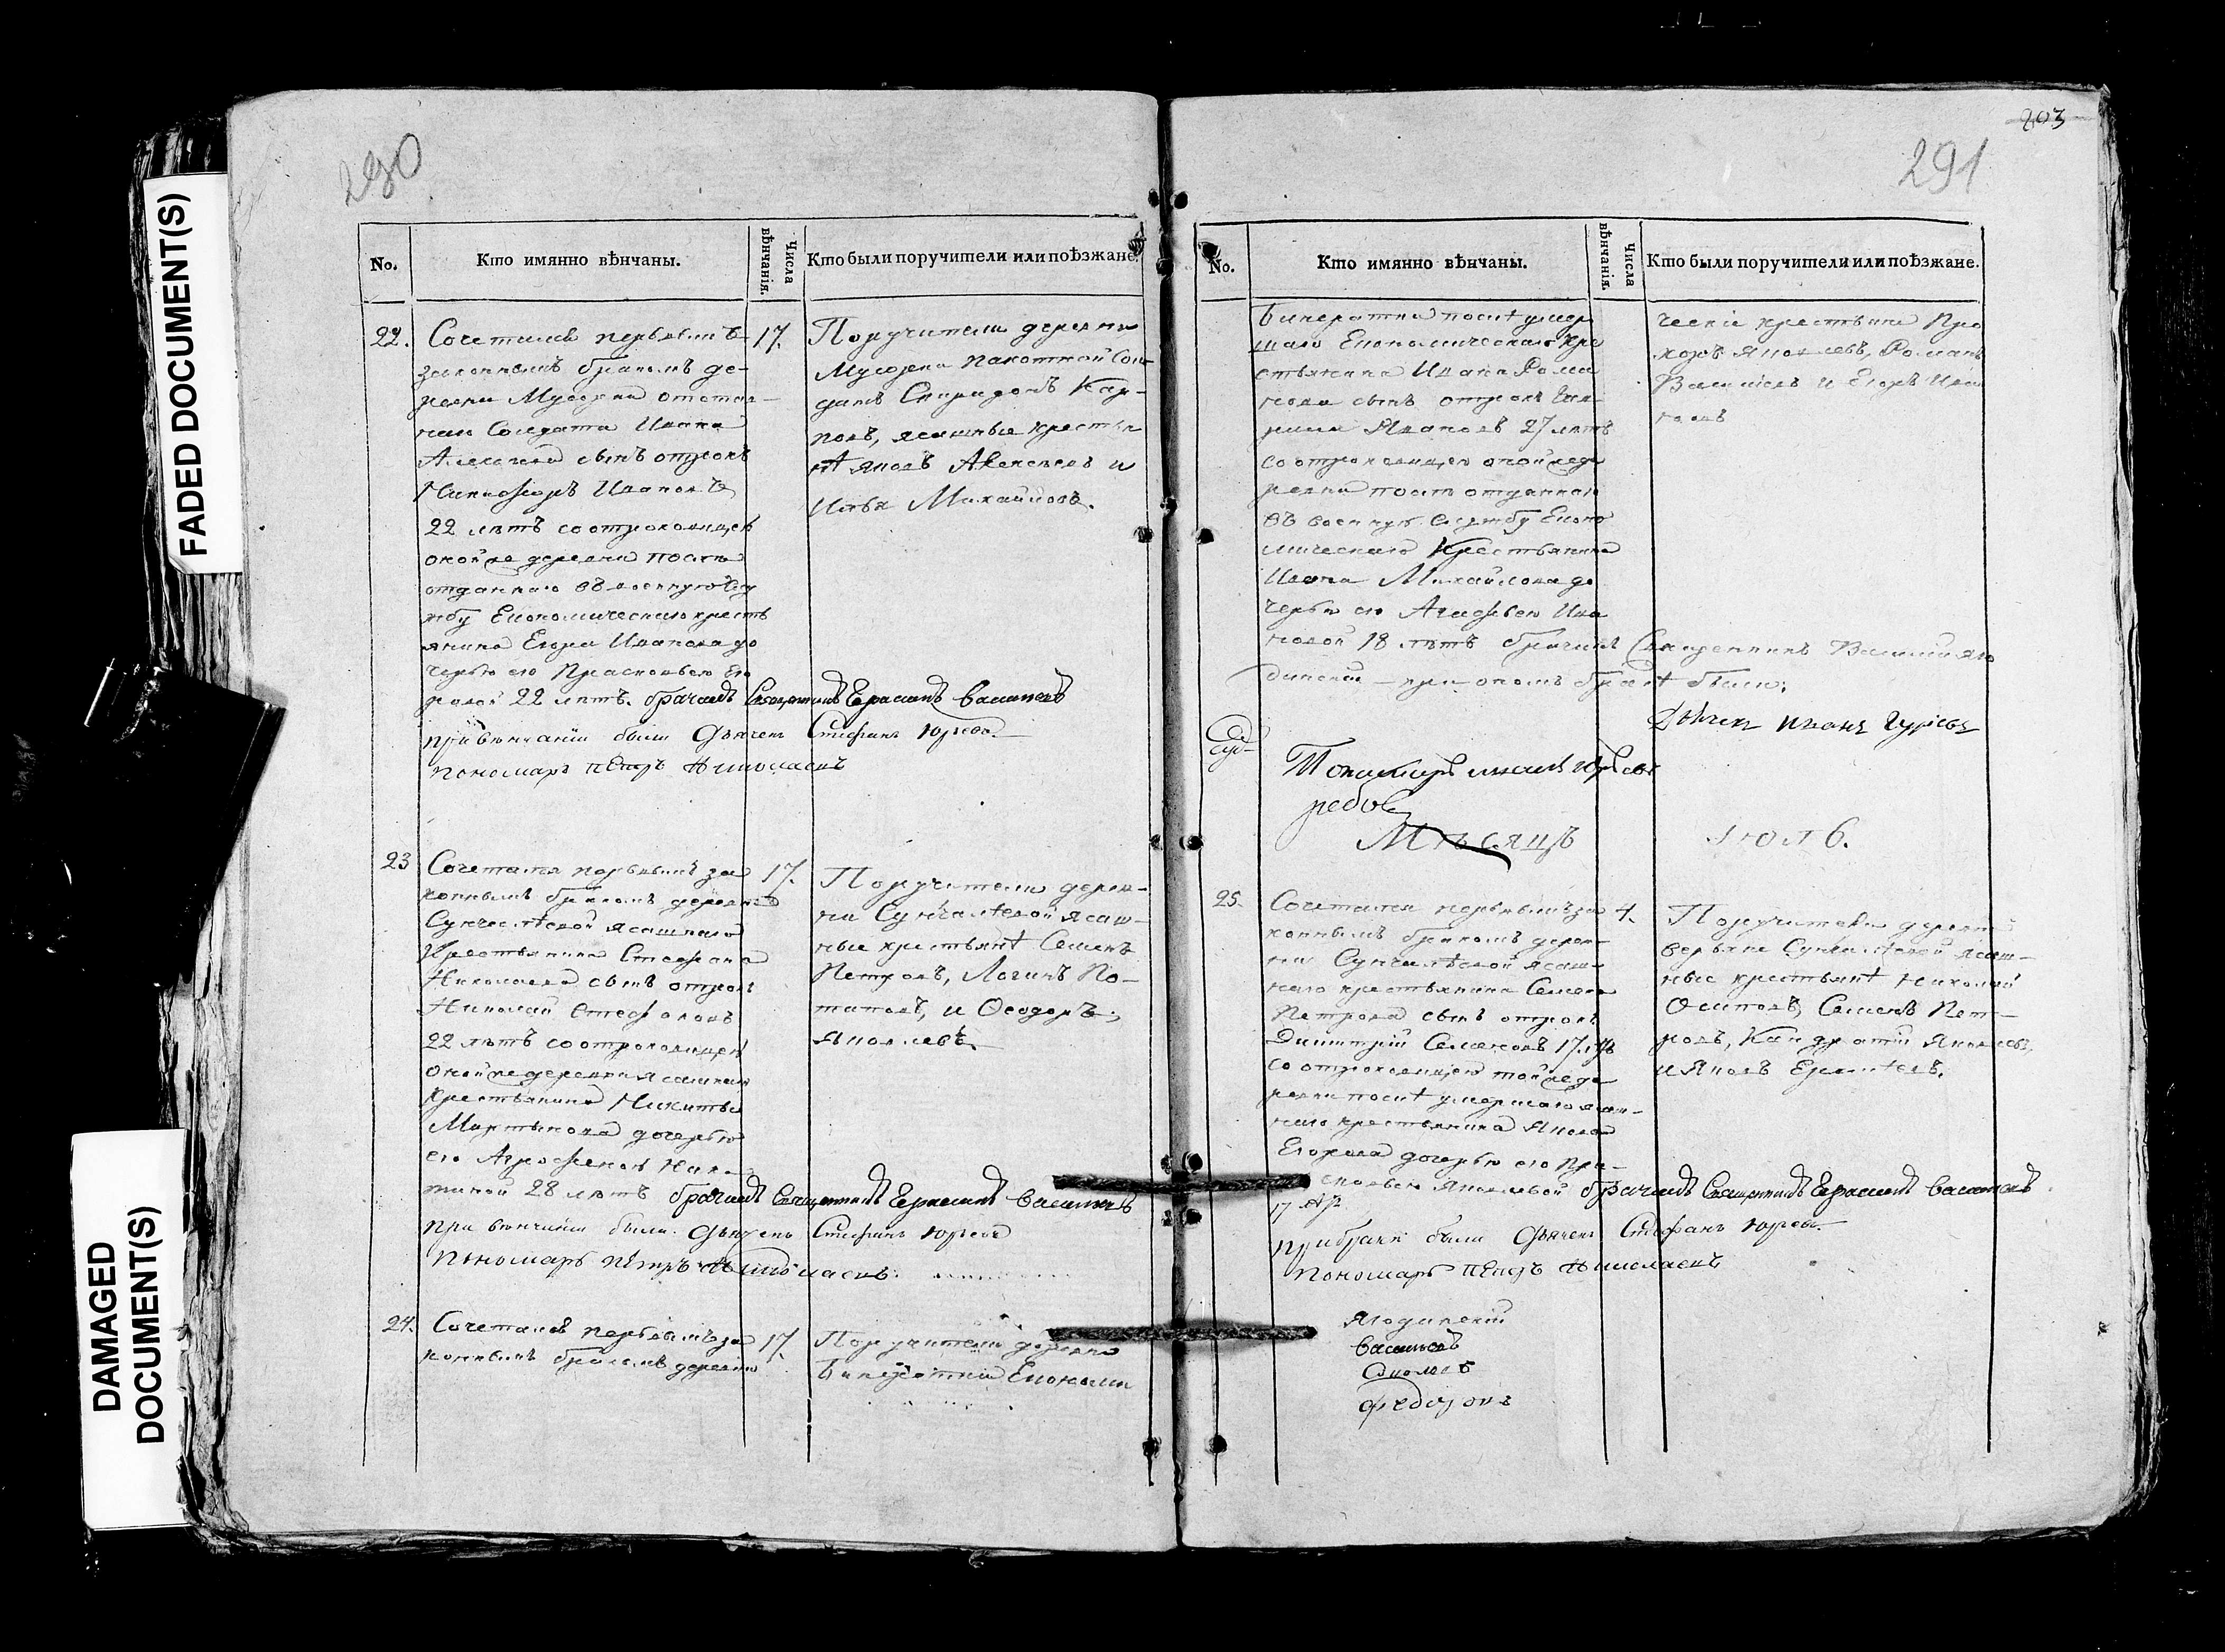 FADED DOCUMENT(S)
DAMAGED
DOCUMENT(S)
290
No.
Кто имянно вѣнчаны.
Числа
вѣнчанія.
Кто были поручители или поѣзжане.
22.
Сочетался первымъ
законнымъ бракомъ де-
ревни отстав-
наго Солдата Ивана
Алексѣева сынъ отрокъ
Никифоръ Ивановъ
22 лѣтъ со отроковицею
оной же деревни послѣ
отданнаго въ военную слу
жбу Економическаго кресть
янина Егора Иванова до
черью его Прасковьею Его
ровой 22 лѣтъ. брачилъ Священникъ Герасимъ Васильевъ
при вѣнчаніи были Дьячекъ Стефанъ Юрьевъ
пономарь Петръ Николаевъ
17.
Поручители деревни
Сол-
датъ Спиридонъ Кар-
повъ, ясашные крестья
нѣ Яковъ Алексѣевъ и
Илья Михайловъ.
23
Сочетался первымъ за
коннымъ бракомъ деревни
Сунчелѣевой ясашнаго
Крестьянина Стефана
Николаева сынъ отрокъ
Николай Стефановъ
22 лѣтъ со отроковицею
оной же деревни ясашнаго
крестьянина Никиты
Мартынова дочерью
его Агрофеною Ники-
тиной 28 лѣтъ брачилъ Священникъ Герасимъ Васильевъ
при вѣнчаніи были Дьячекъ Стефанъ Юрьевъ
Пономарь Петръ Николаевъ
17.
Поручители дерев-
ни Сунчалѣевой ясаш-
ные крестьянѣ Семенъ
Петровъ, Логинъ По-
таповъ, и Ѳеодоръ
Яковлевъ.
24.
Сочетался первымъ за
коннымъ бракомъ деревни
17.
Поручители деревни
Економи
203
291
No.
Кто имянно вѣнчаны.
Числа
вѣнчанія.
Кто были поручители или поѣзжане.
послѣ умер
шаго Економическаго кре
стьянина Ивана Рома
нова сынъ отрокъ
Ивановъ 27 лѣтъ
со отроковицею оной же де
ревни послѣ отданнаго
въ военную службу Еконо
мическаго Крестьянина
Ивана Михайлова до
черью его Агафьею Ива
новой 18 лѣтъ брачилъ Священникъ Василій Яго
динскій при ономъ бракѣ были:
Дьячекъ Иванъ Гурьевъ
ческіе крестьяне Про
хоръ Яковлевъ, Романъ
Васильевъ и Егоръ Ива
новъ
Мѣсяцъ Іюль.
25.
Сочетался первымъ за
коннымъ бракомъ дерев-
ни Сунчалѣевой ясаш-
наго крестьянина Семена
Петрова сынъ отрокъ
Димитрій Семеновъ 17. лѣтъ
со отроковицею той же де
ревни послѣ умершаго ясаш-
наго крестьянина Якова
Егорова дочерью его Пра-
сковьею Яковлевой брачилъ Священникъ Герасимъ Васильевъ
17
при бракѣ были Дьячекъ Стефанъ Юрьевъ
Пономарь Петръ Николаевъ
4.
Поручители деревни
Сунчалѣевой ясаш-
ные крестьянѣ Николай
Осиповъ, Семенъ Пет-
ровъ, Кандратій Яковлевъ,
и Яковъ Ермолаевъ.
Ягодинскій
Васильевъ
Федоровъ